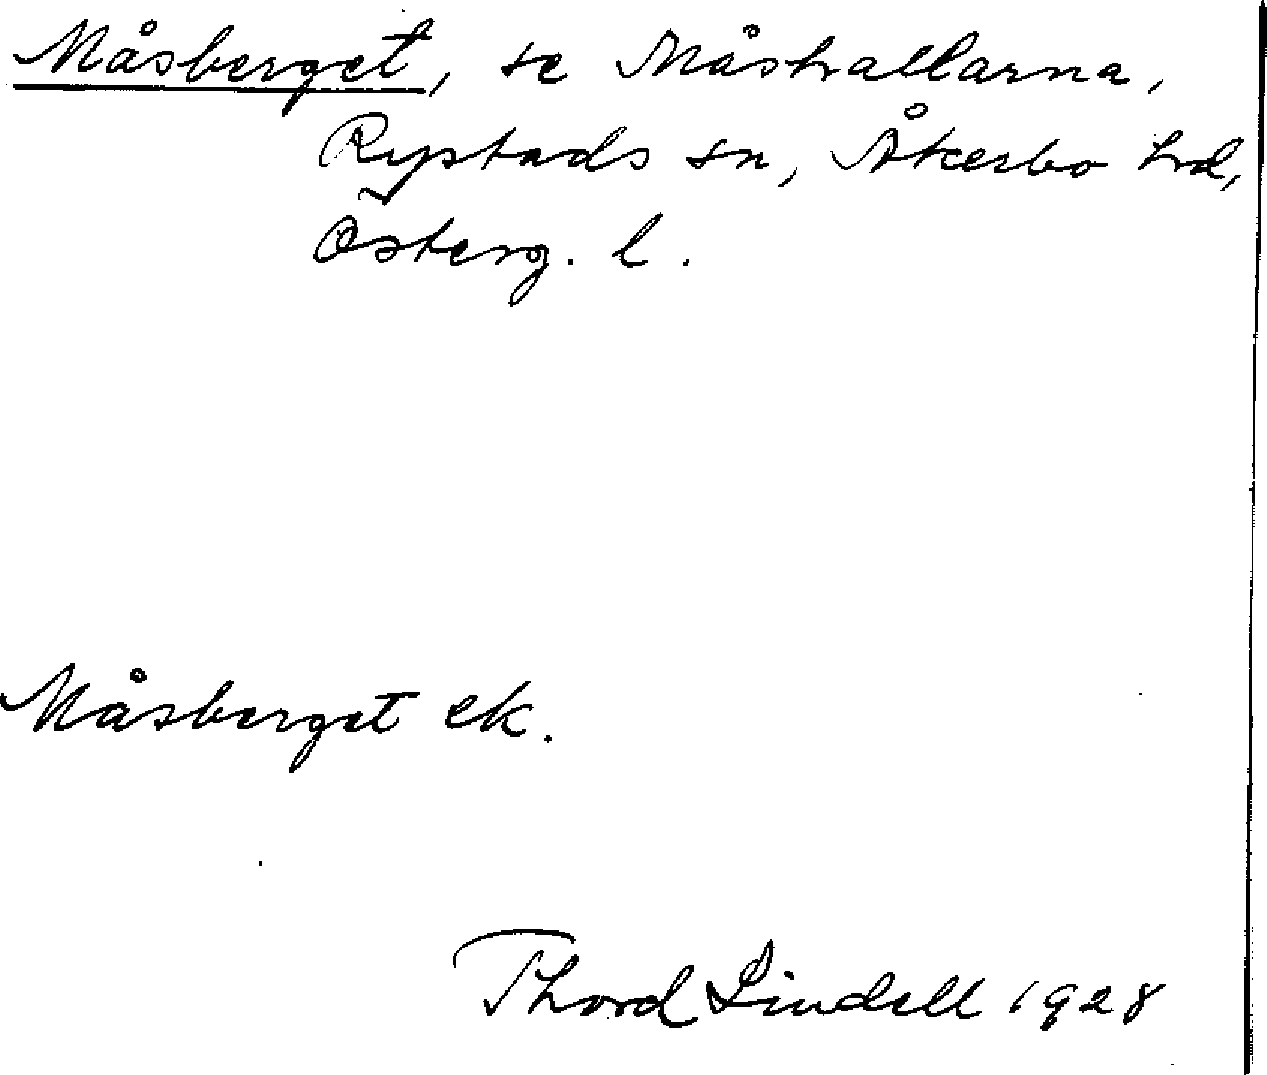 Måsberget, se Måshallarna,
Rystads sn, Åkerbo hd,
Österg. l.
Måsberget ek.
Thord Lindell 1928